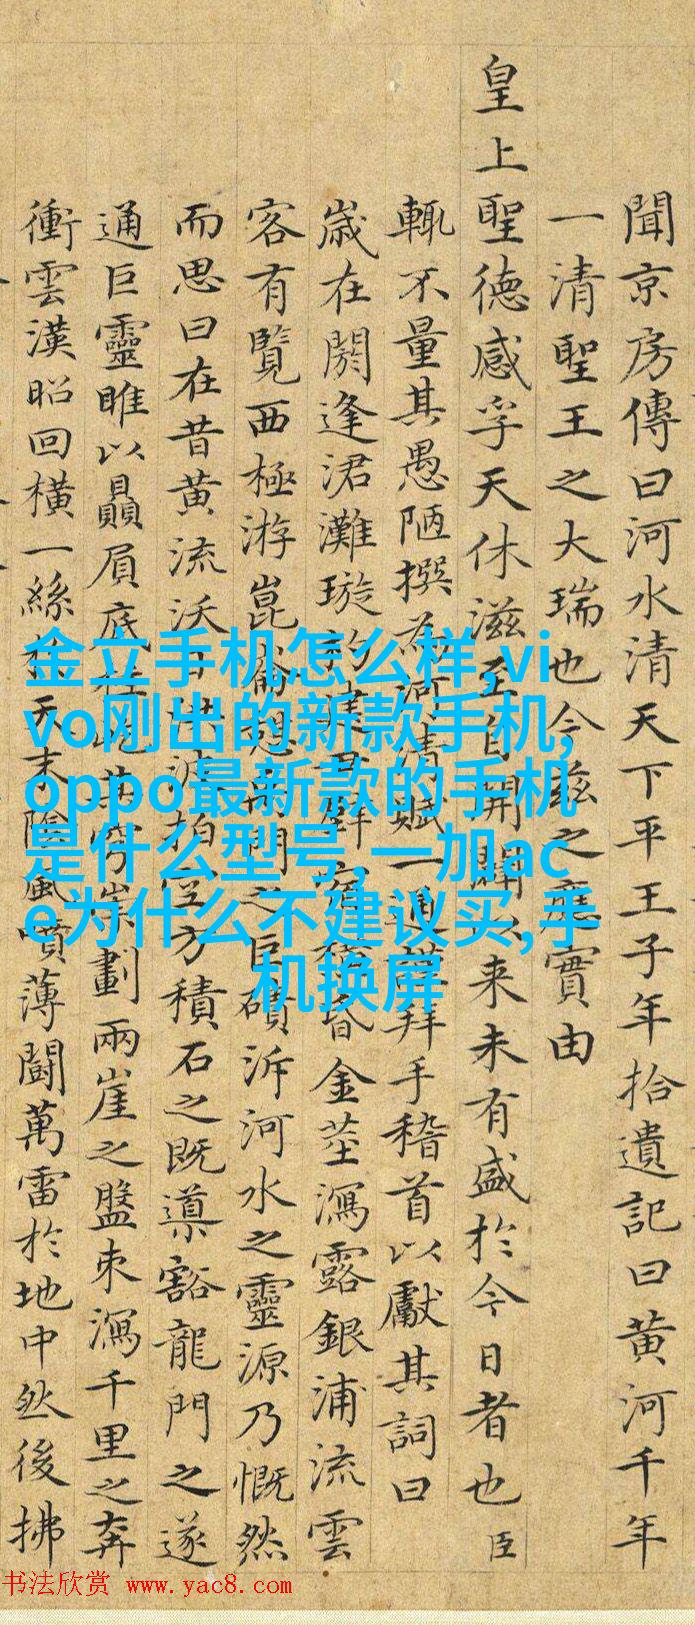 聞京房傳曰河水清天下平王子年拾遺記曰黃河千年
一清聖王之大瑞也今茲之應實由
皇上聖德感孚天休滋至自開闢以来未有盛於今日者也臣
輒不量其愚陋撰為河清賦一通謹拜手稽首以獻其詞曰
歲在閼逢涒灘璇
金莖瀉露銀浦流雲
客有覽西極游崑崙
之巨磧泝河水之靈源乃慨然
而思曰在昔黃流沃日
方積石之既導豁龍門之遂
通巨靈睢以贔屓底柱
劃兩崖之盤束瀉千里之奔
衝雲漢昭回橫一絲於天末陰風噴薄鬪萬雷於地中然後拂
金立手机怎么样,vi
vo刚出的新款手机,
oppo最新款的手机
是什么型号,一加ac
e为什么不建议买,手
机换屏
书法欣赏 www.yac8.com